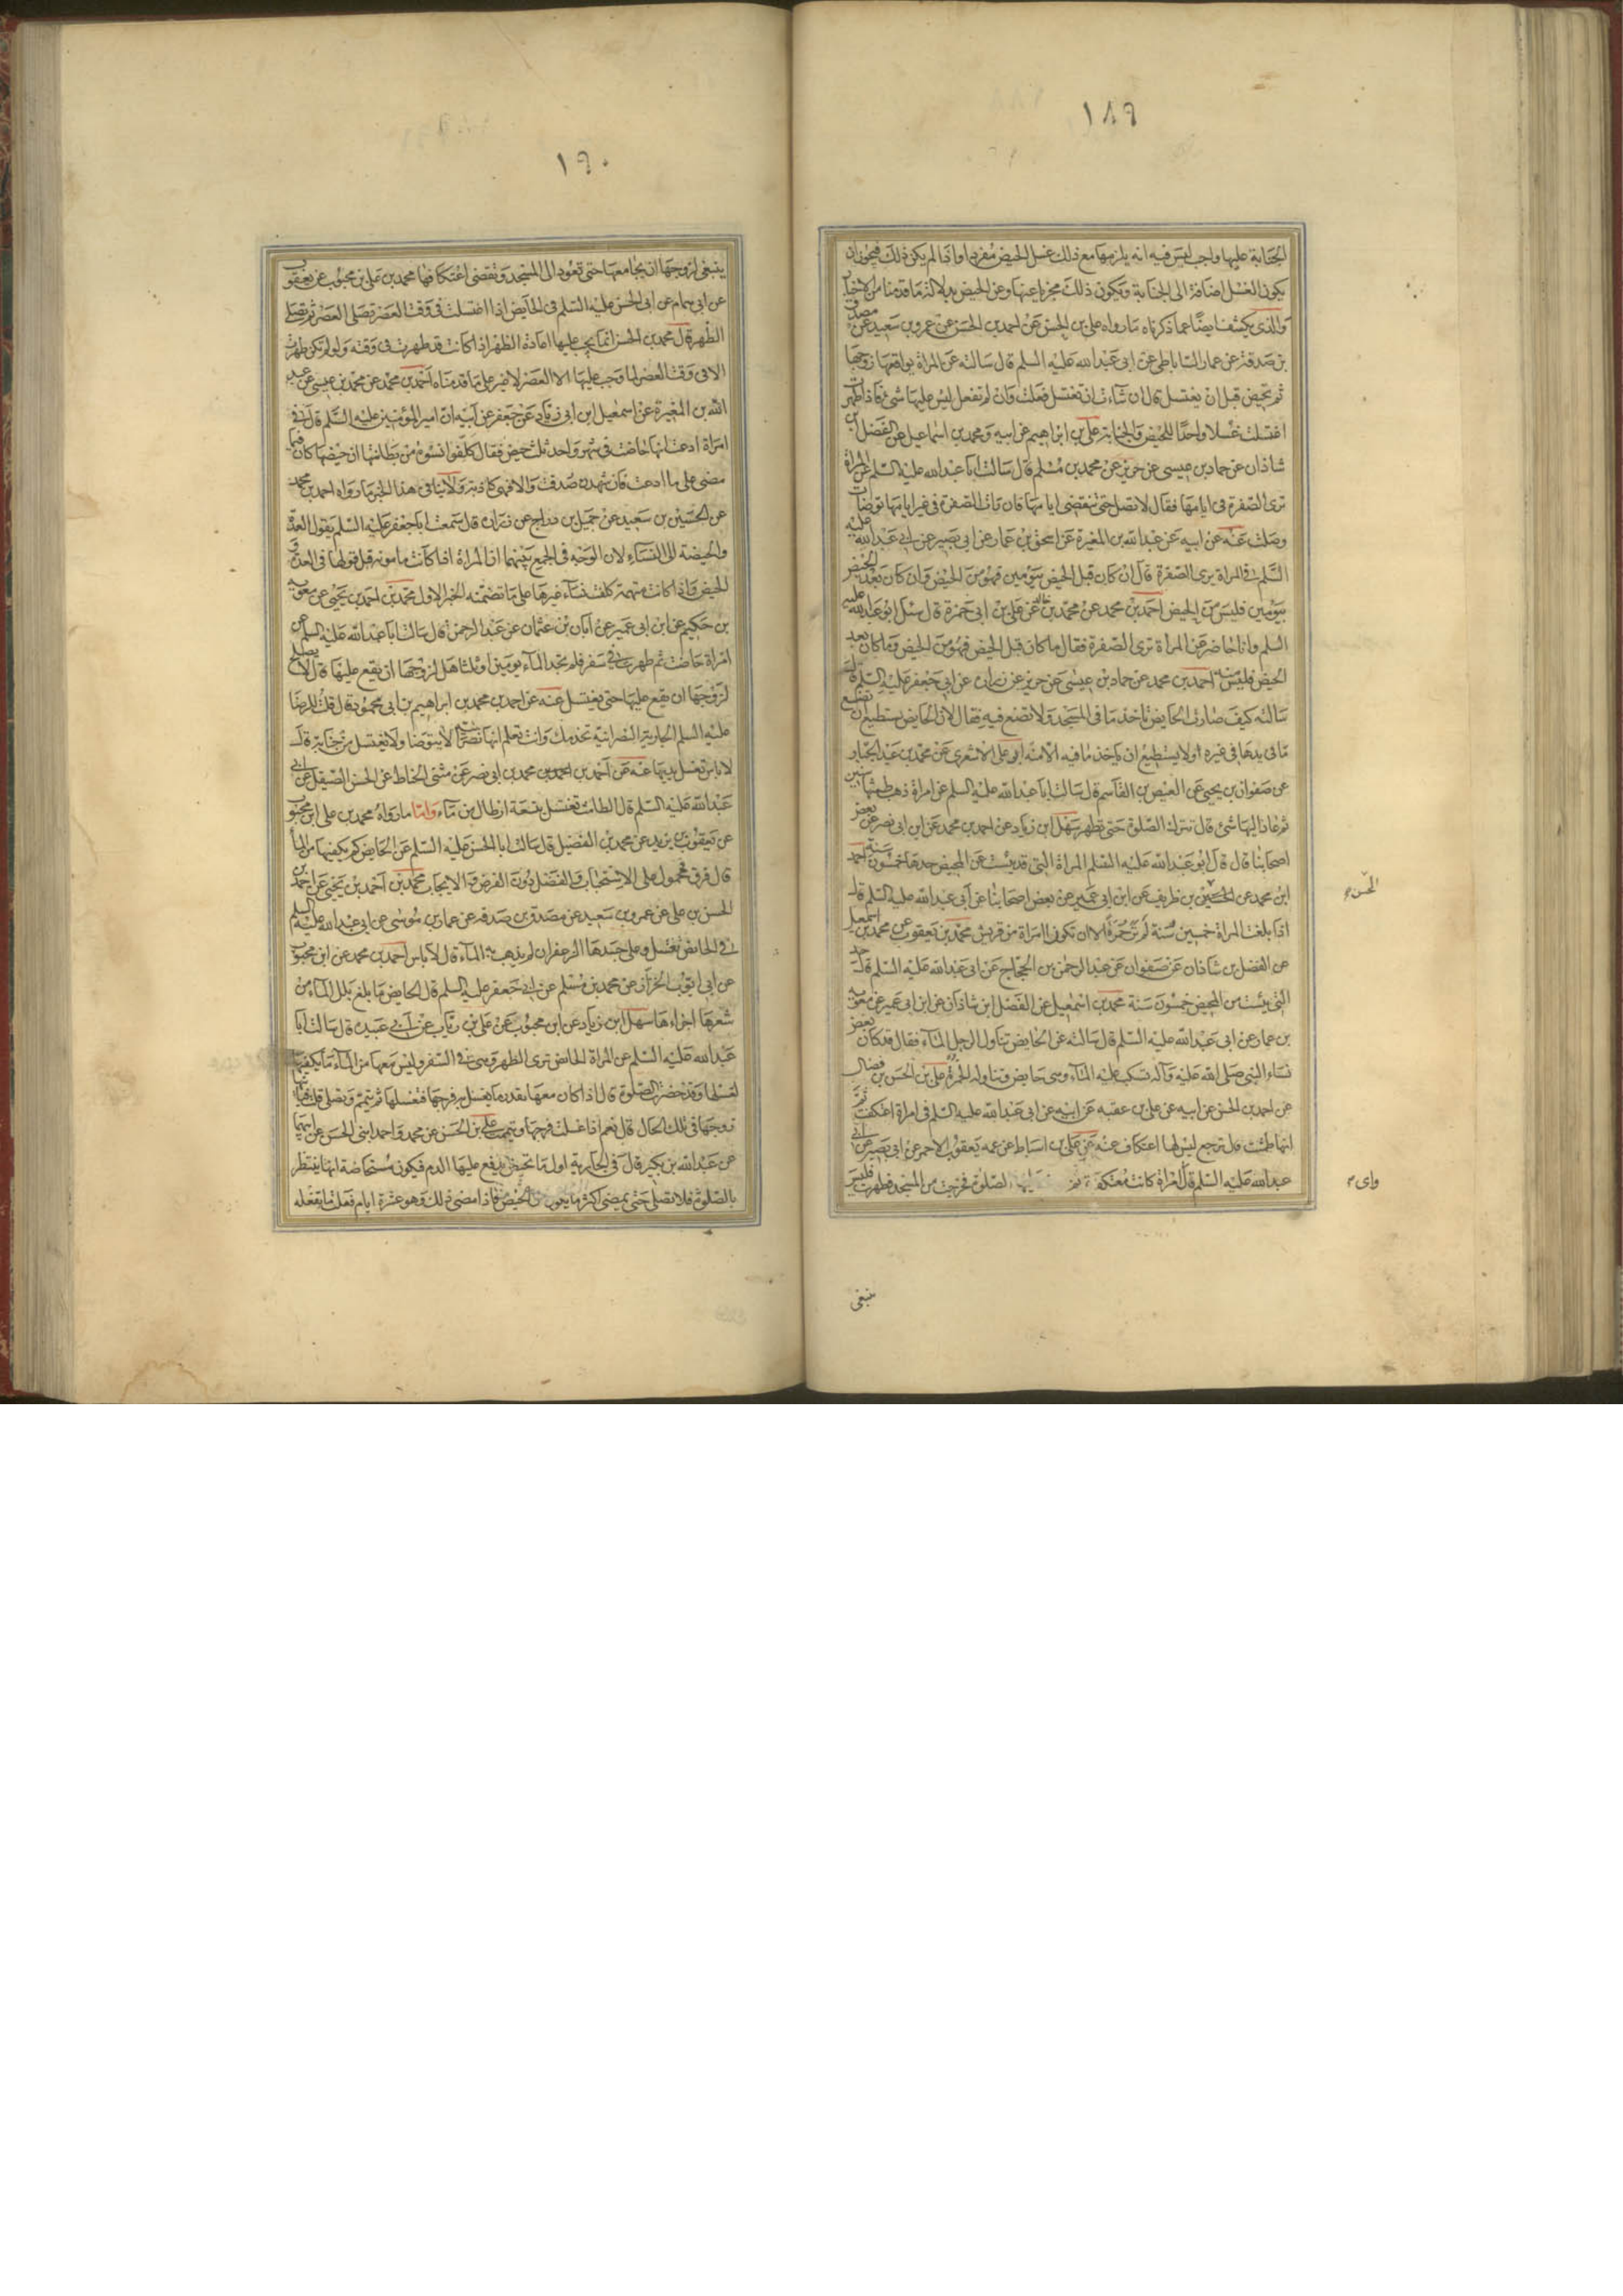 ١٨٩
الجنابة عليها واجب ليس فيه انه يلزمها مع ذلك غسل الحيض مفردا واذا لم يكن ذلك فيجوز ان
يكون الغسل اضافة الى الجنابة ويكون ذلك مجزيا عنها وعن الحيض بدلالة ما قدمنا من الاخبار
والذى يكشف ايضا عما ذكرناه ما رواه على بن الحسن عن احمد بن الحسن عن عمرو بن سعيد عن مصدق
بن صدقة عن عمار الساباطى عن ابى عبد الله عليه السلم قال سالته عن المراة يواقعها زوجها
ثم تحيض قبل ان يغتسل قال ان شاءت ان تغتسل فعلت وان لم تفعل ليس عليها شئ فاذا طهرت
اغتسلت غسلا واحدا للحيض والجنابة على بن ابراهيم عن ابيه ومحمد بن اسماعيل عن الفضل بن
شاذان عن حماد بن عيسى عن حريز عن محمد بن مسلم قال سالت ابا عبد الله عليه السلم عن المراة
ترى الصفرة فى ايامها فقال لا تصل حتى تنقضى ايامها فان رات الصفرة فى غير ايامها توضات
وصلت عنه عن ابيه عن عبد الله بن المغيرة عن اسحق بن عمار عن ابى بصير عن ابى عبد الله عليه
السلم فى المراة يرى الصفرة قال ان كان قبل الحيض بيومين فهو من الحيض وان كان بعد الحيض
بيومين فليس من الحيض احمد بن محمد عن محمد بن خالد عن على بن ابى حمزة قال سئل ابو عبد الله عليه
السلم وانا حاضر عن المراة ترى الصفرة فقال ما كان قبل الحيض فهو من الحيض وما كان بعد
الحيض فليس منه احمد بن محمد عن حماد بن عيسى عن حريز عن زرارة عن ابى جعفر عليه السلم قال
سالته كيف صارت الحايض تاخذ ما فى المسجد ولا تضع فيه فقال لان الحايض تستطيع ان تضع
ما فى يدها فى غيره ولا يستطيع ان ياخذ ما فيه الا منه ابو على الاشعرى عن محمد بن عبد الجبار
عن صفوان بن يحيى عن العيص بن القاسم قال سالت ابا عبد الله عليه السلم عن امراة ذهب طمثها سنين
ثم عاد اليها شئ قال تترك الصلوة حتى تطهر سهل ابن زياد عن احمد بن محمد عن ابن ابى نصر عن بعض
اصحابنا قال قال ابو عبد الله عليه السلم المراة التى قد يئست عن المحيض حدها خمسون سنة احمد
ابن محمد عن الحسين بن ظريف عن ابن ابى عمير عن بعض اصحابنا عن ابى عبد الله عليه السلم قال
الحسن م
اذا بلغت المراة خمسين سنة لم تر حمرة الا ان تكون امراة من قريش محمد بن يعقوب عن محمد بن اسمعيل
عن الفضل بن شاذان عن صفوان عن عبد الرحمن بن الحجاج عن ابى عبد الله عليه السلم قال حد
التى يئست من المحيض خمسون سنة محمد بن اسمعيل عن الفضل ابن شاذان عن ابن ابى عمير عن معوية
بن عمار عن ابى عبد الله عليه السلم قال سالته عن الحايض تناول الرجل الماء فقال قد كان بعض
نساء النبى صلى الله عليه وآله تسكب عليه الماء وهى حايض وتناوله الخمرة على بن الحسن بن فضال
عن احمد بن الحسن عن ابيه عن على بن عقبه عن ابيه عن ابى عبد الله عليه السلم فى امراة اعتكفت ثم
انها طمثت قال ترجع ليس لها اعتكاف عنه عن على بن اسباط عن عمه يعقوب الاحمر عن ابى بصير عن ابى
عبد الله عليه السلم قال امراة كانت معتكفة الصلوة فخرجت من المسجد فطهرت فليس
واى م
ينبغى
١٩٠
ينبغى لزوجها ان يجامعها حتى تعود الى المسجد وتقضى اعتكافها محمد بن على بن محبوب عن يعقوب
عن ابى همام عن ابى الحسن عليه السلم فى الحايض اذا اغتسلت فى وقت العصر تصلى العصر ثم تصلى
الظهر قال محمد بن الحسن انما يجب عليها اعادة الظهر اذا كانت قد طهرت فى وقته ولو لم تكن طهرت
الا فى وقت العصر لما وجب عليها الا العصر لا غير على ما قدمناه احمد بن محمد عن محمد بن عيسى عن عبد
الله بن المغيرة عن اسمعيل ابن ابى زياد عن جعفر عن ابيه ان امير المؤمنين عليه السلم قال فى
امراة ادعت انها حاضت فى شهر واحد ثلث حيض فقال كلفوا نسوة من بطانتها ان حيضها كان فيما
مضى على ما ادعت فان شهدن صدقت والا فهى كاذبة ولا ينافى هذا الخبر ما رواه احمد بن محمد
عن الحسين بن سعيد عن جميل بن دراج عن زرارة قال سمعت ابا جعفر عليه السلم يقول العدة
والحيضة الى النساء لان الوجه فى الجمع بينهما ان المراة اذا كانت مامونه قبل قولها فى العدة و
الحيض واذا كانت متهمة كلفت نساء غيرها على ما تضمنه الخبر الاول محمد بن احمد بن يحيى عن معوية
بن حكيم عن ابن ابى عمير عن ابان بن عثمان عن عبد الرحمن قال سالت ابا عبد الله عليه السلم عن
امراة حاضت ثم طهرت فى سفر فلم تجد الماء يومين او ثلثا هل لزوجها ان يقع عليها قال لا يصلح
لزوجها ان يقع عليها حتى يغتسل عنه عن احمد بن محمد بن ابراهيم بن ابى محمود قال قلت للرضا
عليه السلم الجارية النصرانية تخدمك وانت تعلم انها نصرانية لا يتوضا ولا تغتسل من جنابة قال
لا باس تغسل يديها عنه عن احمد بن احمد بن محمد بن ابى نصر عن مثنى الحناط عن الحسن الصيقل عن ابى
عبد الله عليه السلم قال الطامث تغتسل بتسعة ارطال من ماء واما ما رواه محمد بن على ابن محبوب
عن يعقوب بن يزيد عن محمد بن الفضيل قال سالت ابا الحسن عليه السلم عن الحايض كم يكفيها من الماء
قال فرق محمول على الاستحباب والفضل دون الفرض والايجاب محمد بن احمد بن يحيى عن احمد بن
الحسن بن على عن عمرو بن سعيد عن مصدق بن صدقة عن عمار بن موسى عن ابى عبد الله عليه السلم
فى الحائض تغتسل وعلى جسدها الزعفران لم يذهب به الماء قال لا باس احمد بن محمد عن ابن محبوب
عن ابى ايوب الخزاز عن محمد بن مسلم عن ابى جعفر عليه السلم قال الحايض ما بلغ بلل الماء من
شعرها اجزاءها سهل ابن زياد عن ابن محبوب عن على بن رئاب عن ابى عبيدة قال سالت ابا
عبد الله عليه السلم عن المراة الحائض ترى الطهر وهى فى السفر وليس معها من الماء ما يكفيها
لغسلها وقد حضرت الصلوة قال اذا كان معها بقدر ما يغسل به فرجها فتغسلها ثم تيمم وتصلى قلت فياتيها
زوجها فى تلك الحال قال نعم اذا غسلت فرجها وتيممت على بن الحسن عن محمد واحمد ابنى الحسن عن ابيهما
عن عبد الله بن بكير قال فى الجارية اول ما تحيض يدفع عليها الدم فيكون مستحاضة انها ينتظر
بالصلوة فلا تصلى حتى يمضى اكثر ما يكون من الحيض فاذا مضى ذلك وهو عشرة ايام فعلت ما تفعله